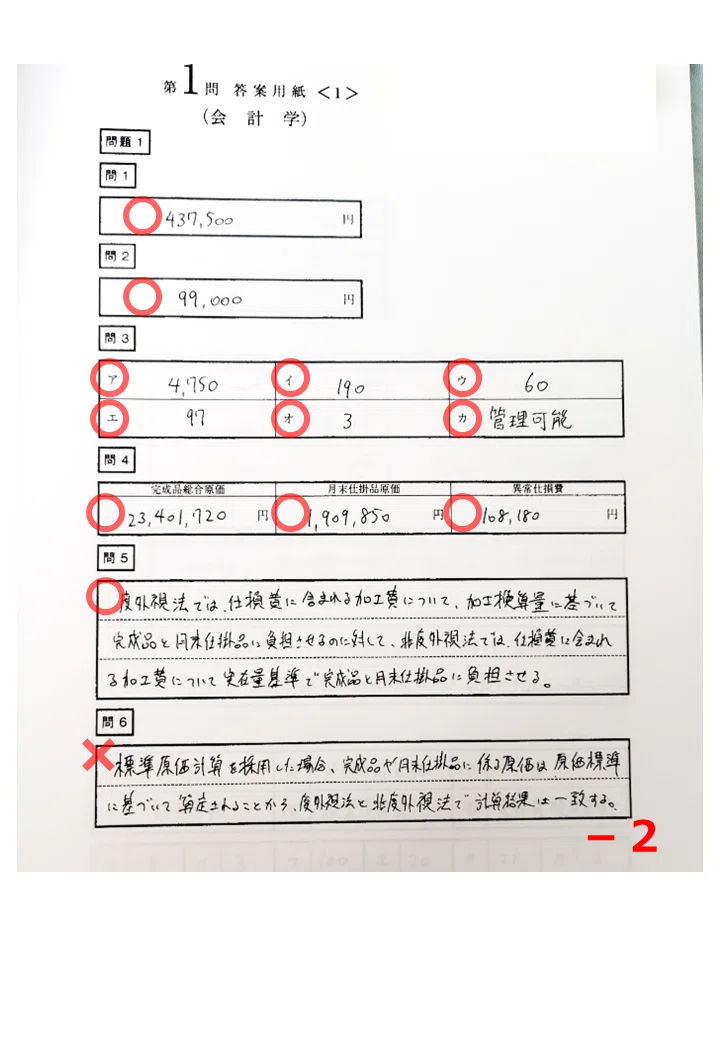 第1問 答案用紙<1>
(会計学)
問題1
問1
437,500 円
問2
99,000 円
問3
ア 4,750 イ 190 ウ 60
エ 97 オ 3 カ 管理可能
問4
完成品総合原価 月末仕掛品原価 異常仕損費
23,401,720 円 1,909,850 円 108,180 円
問5
度外視法では、仕損費に含まれる加工費について、加工換算量に基づいて
完成品と月末仕掛品に負担させるのに対して、非度外視法では、仕損費に含まれ
る加工費について実在量基準で完成品と月末仕掛品に負担させる。
問6
標準原価計算を採用した場合、完成品や月末仕掛品に係る原価は原価標準
に基づいて算定されることから、度外視法と非度外視法で計算結果は一致する。
-2